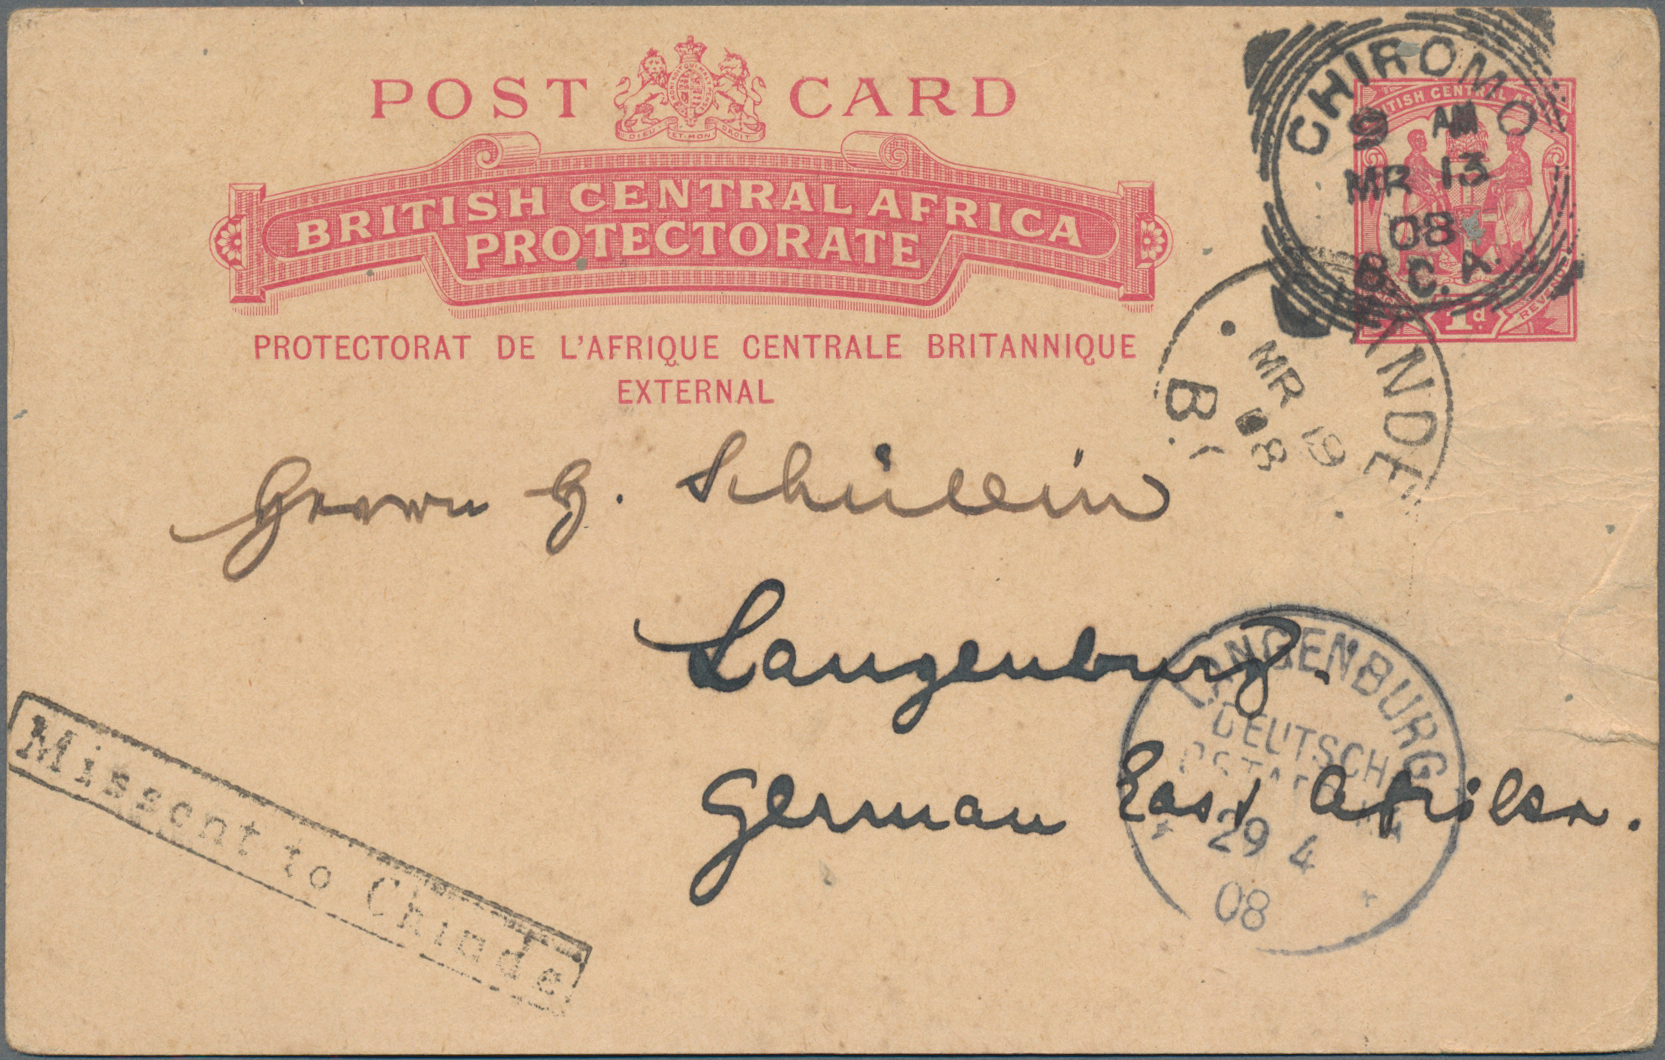 POST CARD
DIEU ET MON DROIT
BRITISH CENTRAL AFRICA
PROTECTORATE
PROTECTORAT DE L'AFRIQUE CENTRALE BRITANNIQUE
EXTERNAL
CHIROMO
9 AM
MR 13
08
B.C.A.
BRITISH CENTRAL
1d
REVENUE
INDE
MR 19
08
B.C
Herrn G. Schüllein
Langenburg.
German East Afrika.
LANGENBURG
DEUTSCH
OSTAFRIKA
29 4
08
Missent to Chinde